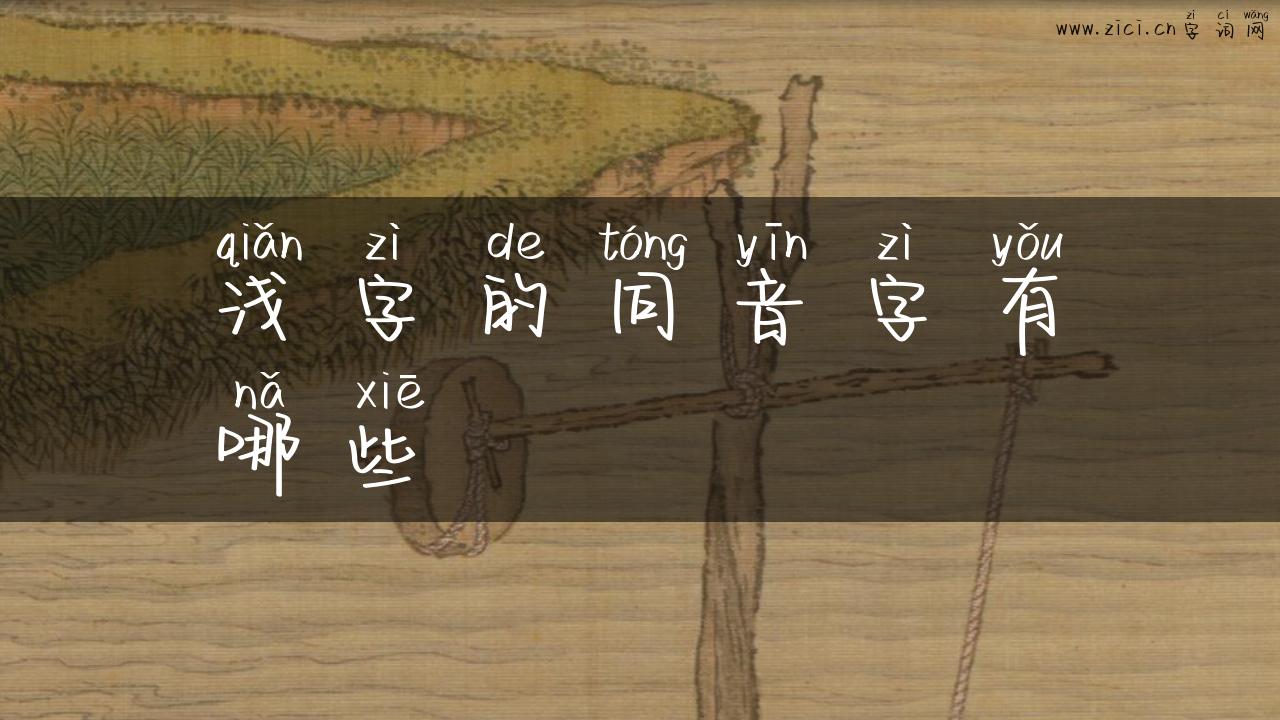 zì cí wǎng
www.zici.cn 字词网
qiǎn zì de tóng yīn zì yǒu
浅字的同音字有
nǎ xiē
哪些